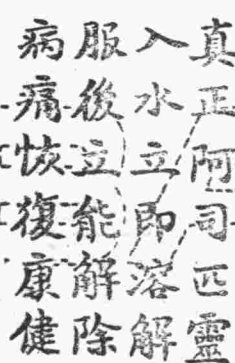 真正阿司匹靈
入水立即溶解
服後立能解除
病痛恢復康健